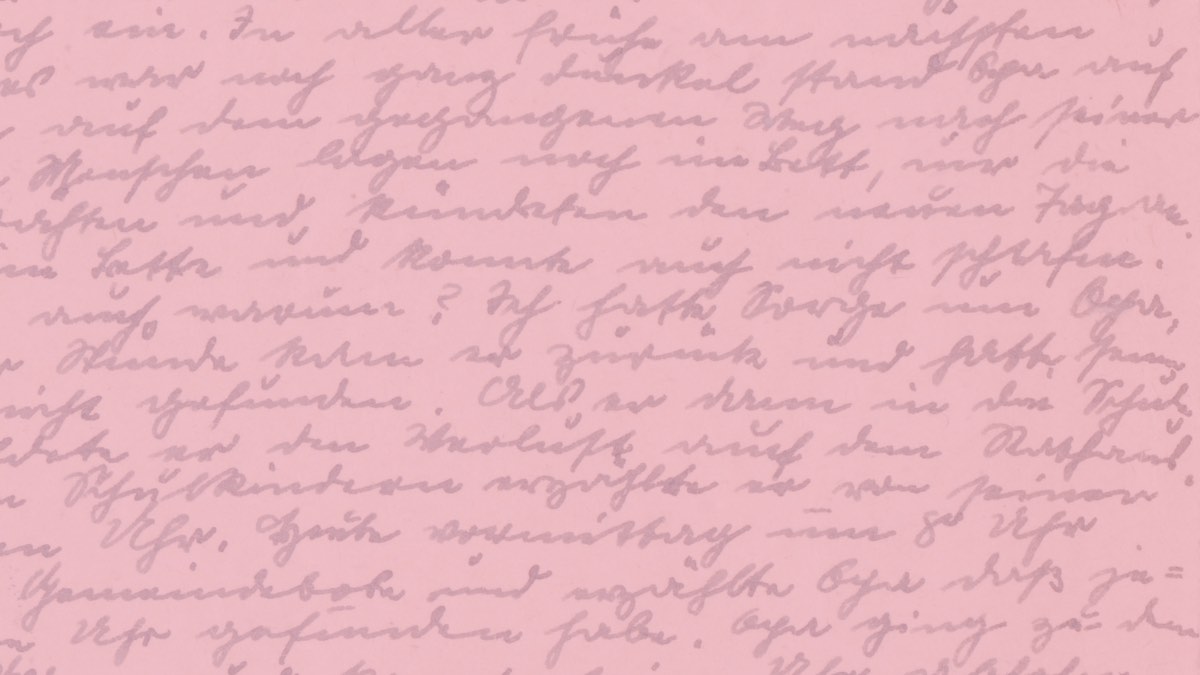 ein. In aller Frühe am nächsten
es war noch ganz dunkel stand Opa auf
auf dem gegangenen Weg nach seiner
Menschen lagen noch im Bett, nur die
und kündeten den neuen Tag an.
Bette und konnte auch nicht schlafen.
auch warum? Ich hatte Sorge um Opa,
Stunde kam er zurück und hatte seine
nicht gefunden. Als er dann in die Schul
er den Verlust auch dem Rathaus.
Schulkindern erzählte er von seiner
Uhr. Heute vormittag um 8 Uhr
Gemeindebote und erzählte Opa daß je=
Uhr gefunden habe. Opa ging zu dem
Uhr